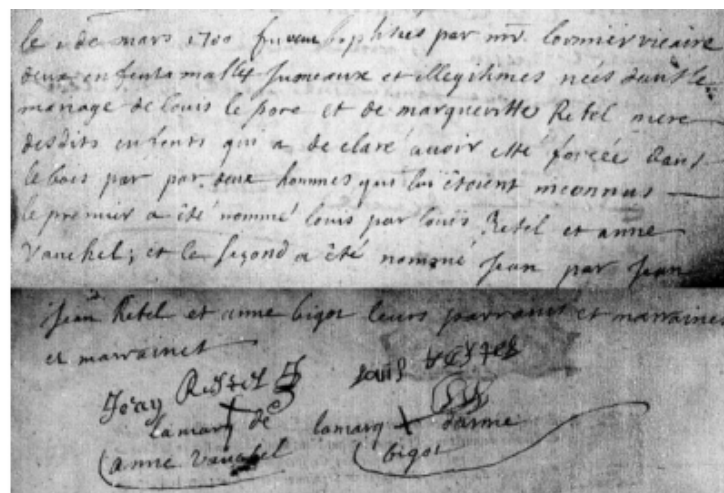 le de mars 1700 furent baptisés par mr. Cormier vicaire
deux enfents malles jumeaux et illegitimes neés dans le
mariage de louis le pore et de margueritte Retel mere
desdits enfents qui a declaré avoir esté forcée dans
le bois par par deux hommes qui lui étoient inconnus
le premier a été nommé louis par louis Retel et anne
vauchel; et le segond a été nommé jean par jean
jean Retel et anne bigot leurs parrains et marraines
et marraines
Retel louis
lamarq de lamarq danne
anne vauchel bigot